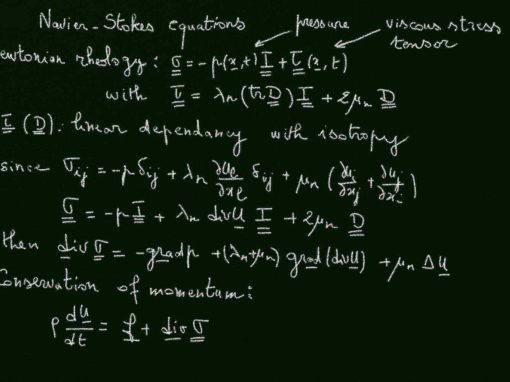 Navier-Stokes equations pressure viscous stress tensor
ewtonian rheology: σ = -p(x,t) I + τ(x,t)
with τ = λn (tr D) I + 2μn D
τ (D): linear dependancy with isotropy
since σij = -p δij + λn ∂uℓ/∂xℓ δij + μn (∂ui/∂xj + ∂uj/∂xi)
σ = -p I + λn div u I + 2μn D
then div σ = -grad p + (λn+μn) grad (div u) + μn Δu
Conservation of momentum:
ρ du/dt = f + div σ